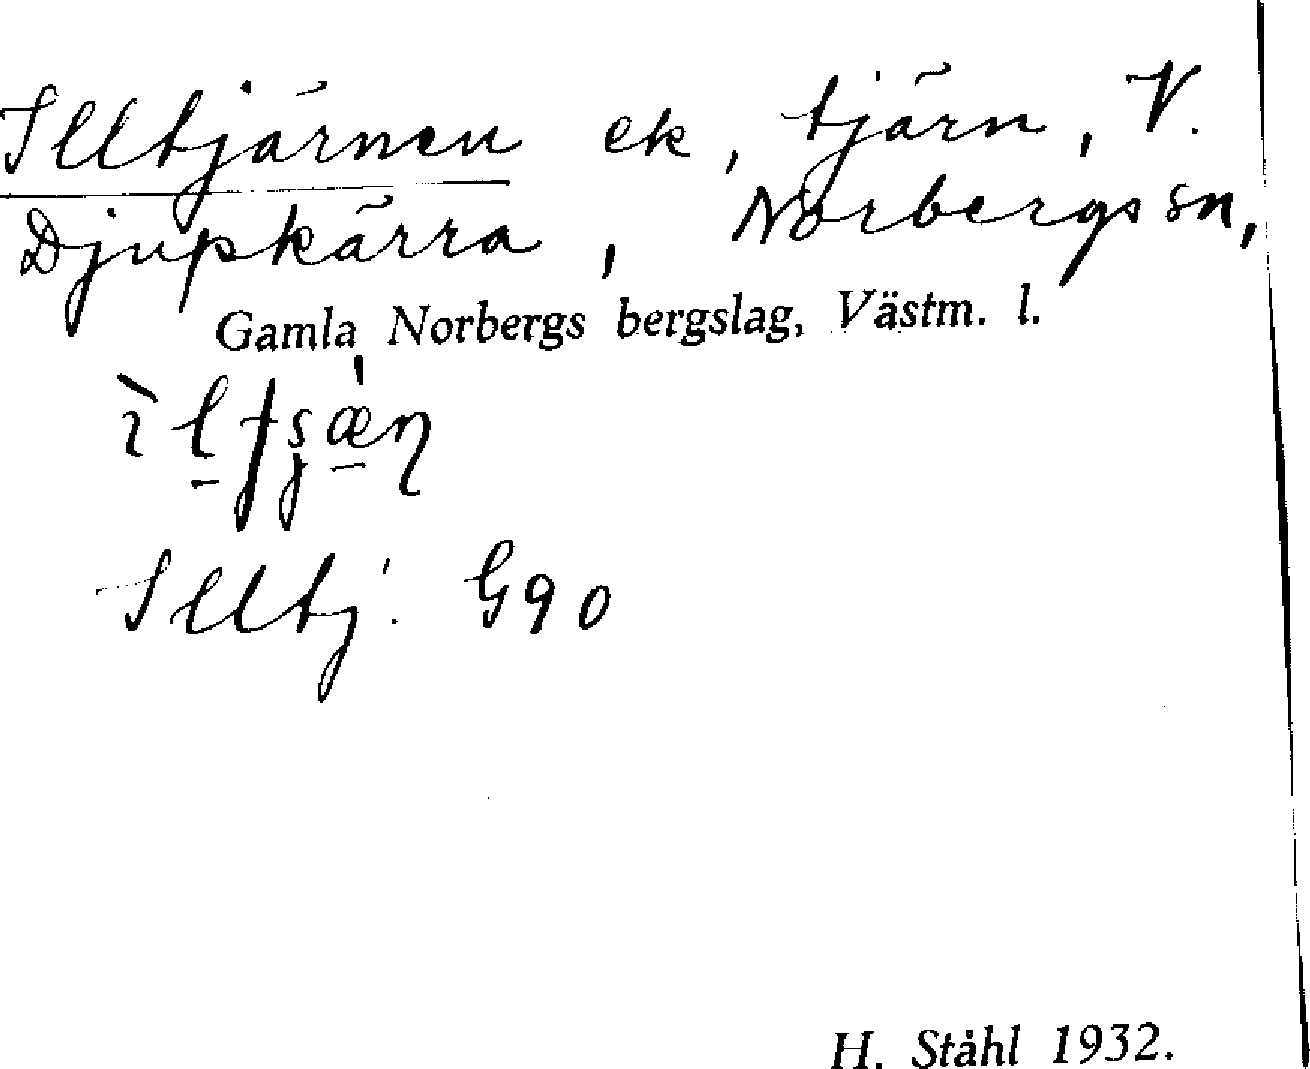 Illtjärnen ek, tjärn, V.
Djupkärra, Norbergs sn,
Gamla Norbergs bergslag, Västm. l.
Illtj. G90
H. Ståhl 1932.